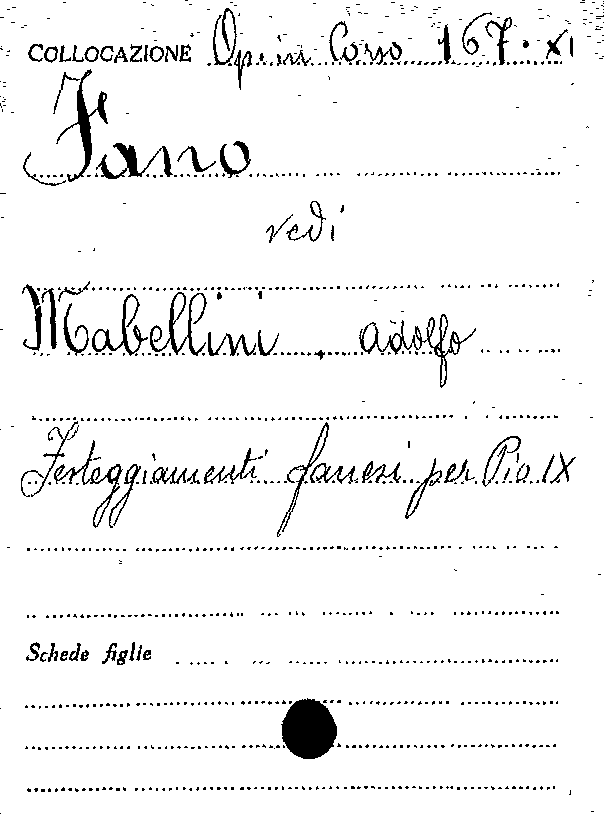 COLLOCAZIONE Op. in Corso 167. XI
Fano
vedi
Mabellini, Adolfo
Festeggiamenti fanesi per Pio IX
Schede figlie